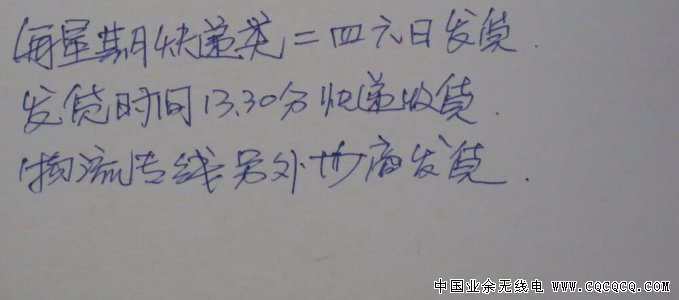 每星期快递类二四六日发货.
发货时间13.30分快递收货.
物流专线另外协商发货.
中国业余无线电 www.cqcqcq.com